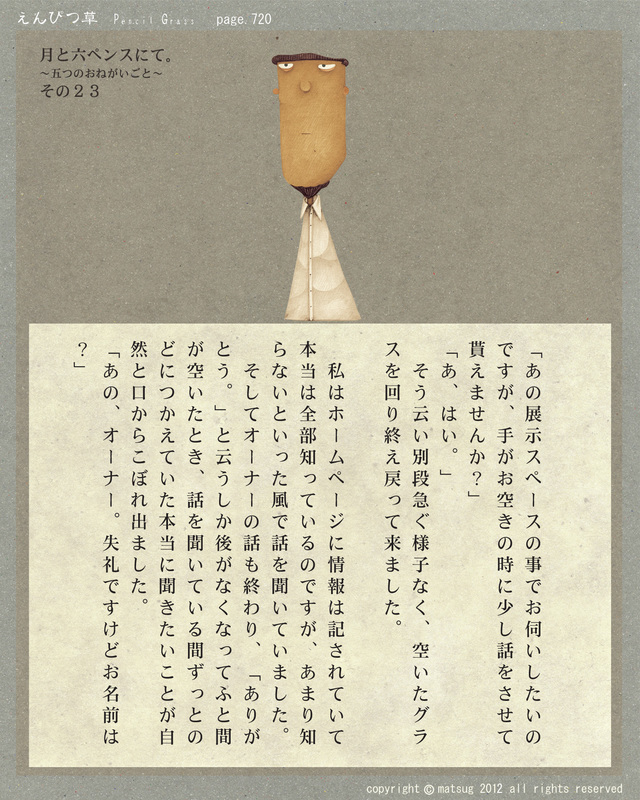 えんぴつ草 Pencil Grass page.720
月と六ペンスにて。
～五つのおねがいごと～
その２３
「あの展示スペースの事でお伺いしたいの
ですが、手がお空きの時に少し話をさせて
貰えませんか？」
「あ、はい。」
そう云い別段急ぐ様子なく、空いたグラ
スを回り終え戻って来ました。
私はホームページに情報は記されていて
本当は全部知っているのですが、あまり知
らないといった風で話を聞いていました。
そしてオーナーの話も終わり、「ありが
とう。」と云うしか後がなくなってふと間
が空いたとき、話を聞いている間ずっとの
どにつかえていた本当に聞きたいことが自
然と口からこぼれ出ました。
「あの、オーナー。失礼ですけどお名前は
？」
copyright © matsug 2012 all rights reserved